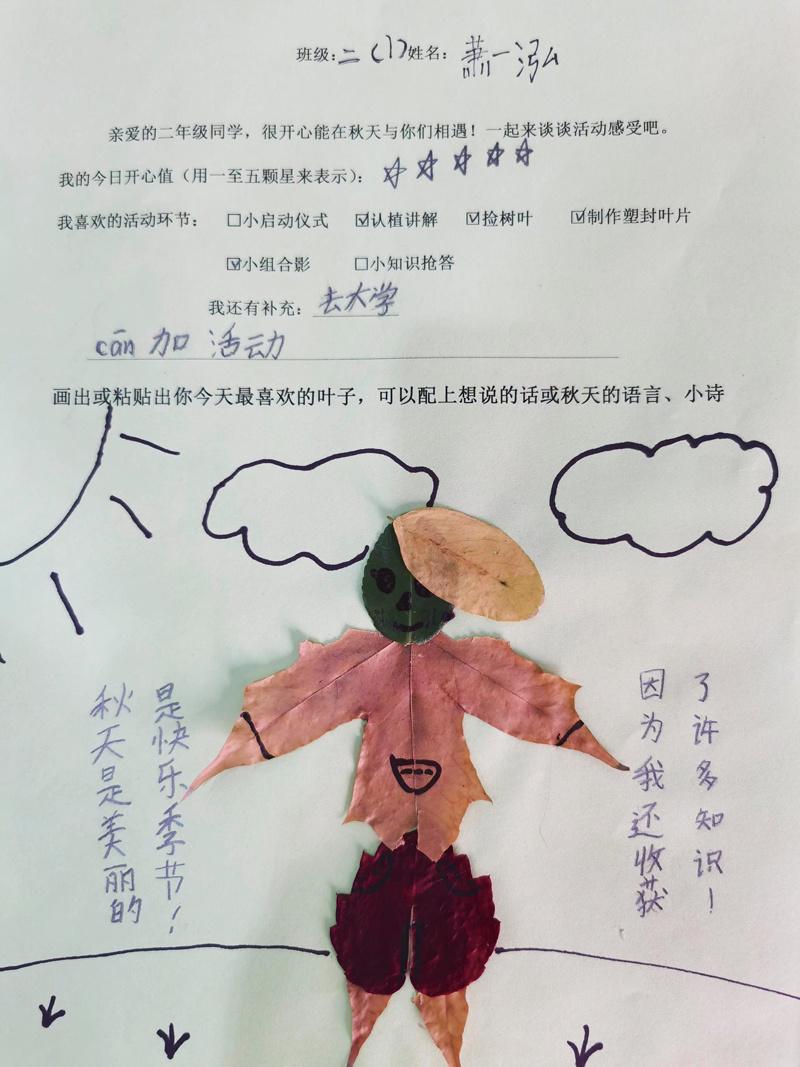 班级：二（1）姓名：萧一泓
亲爱的二年级同学，很开心能在秋天与你们相遇！一起来谈谈活动感受吧。
我的今日开心值（用一至五颗星来表示）：☆☆☆☆☆
我喜欢的活动环节： ☐小启动仪式 ☑认植讲解 ☑捡树叶 ☑制作塑封叶片
☑小组合影 ☐小知识抢答
我还有补充：去大学
cān加活动
画出或粘贴出你今天最喜欢的叶子，可以配上想说的话或秋天的语言、小诗
秋天是美丽的
是快乐季节！
因为我还收获
了许多知识！